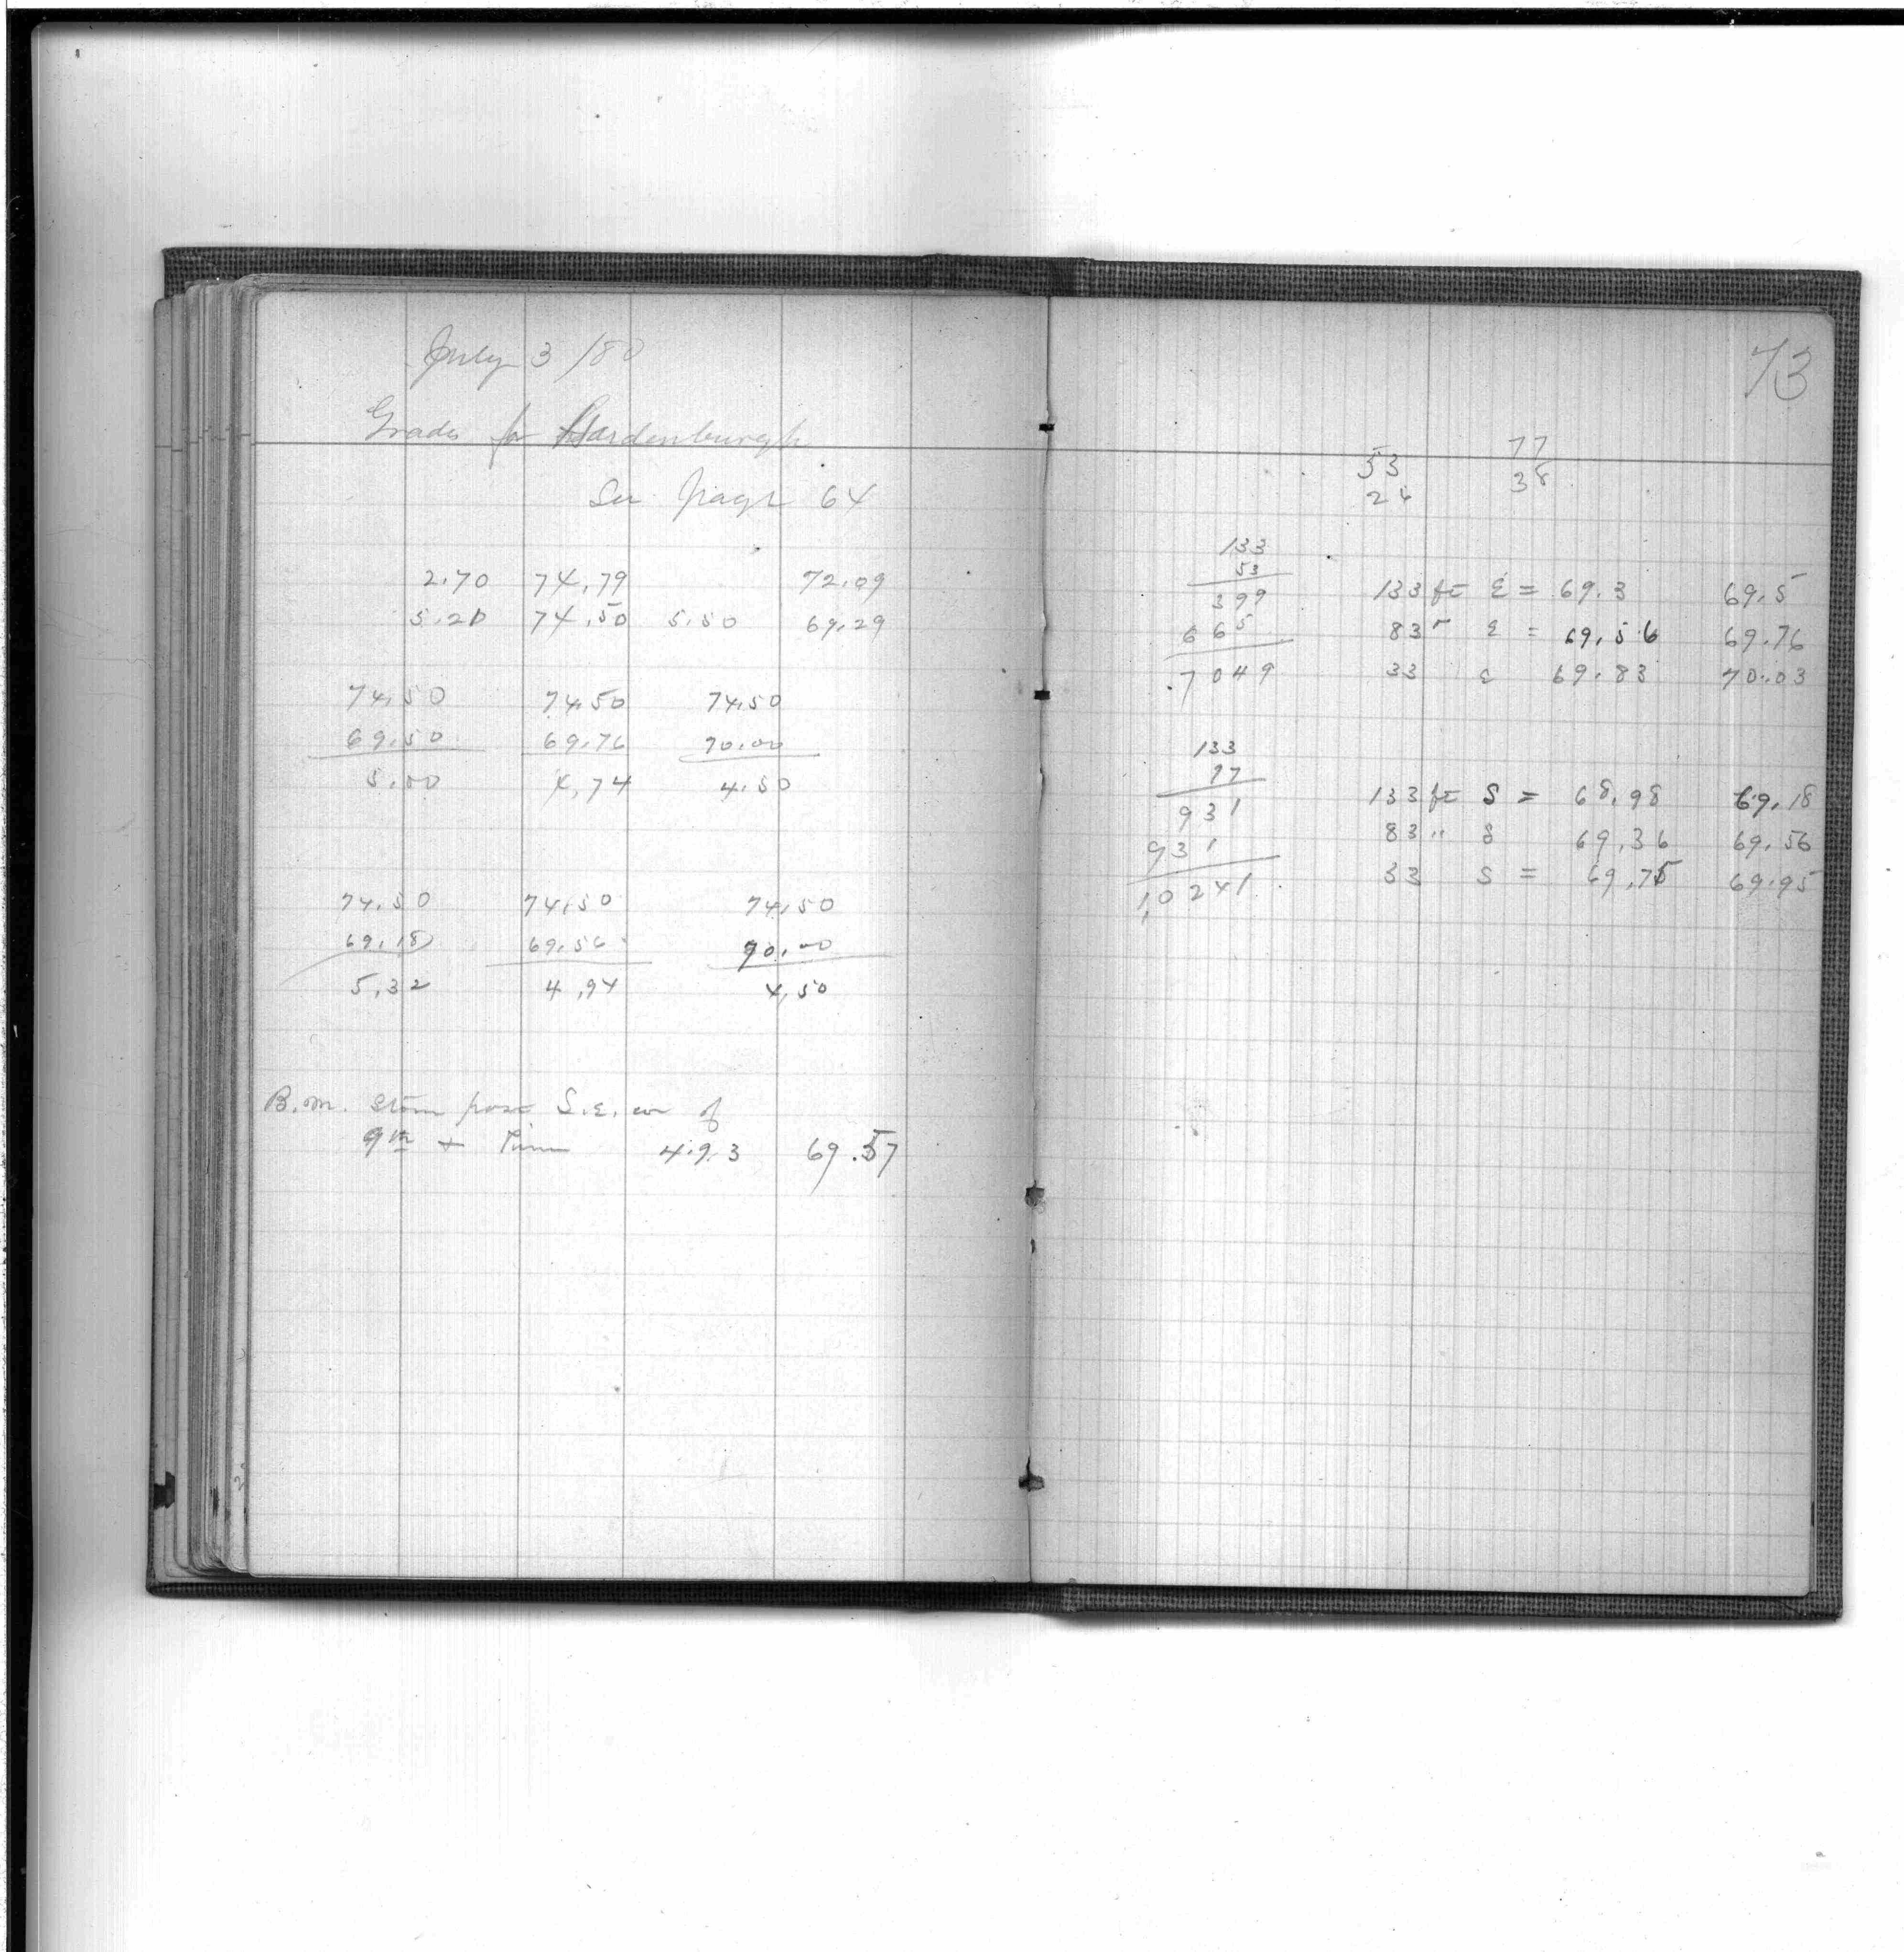 July 3 /80
Grades for Hardenburgh
See page 64
2.70 74.79 72.09
5.21 74.50 5.50 69.29
74.50 74.50 74.50
69.50 69.76 70.00
5.00 4.74 4.50
74.50 74.50 74.50
69.18 69.56 70.00
5.32 4.94 4.50
B.M. stone post S.E. cor of
9th + Pine 4.93 69.57
73
53 77
26 38
133
53
399
665
.7049
133 ft E = 69.3 69.5
83 " E = 69.56 69.76
33 E 69.83 70.03
133
77
931
931
1,0241
133 ft S = 68.98 69.18
83 " S 69.36 69.56
33 S = 69.75 69.95